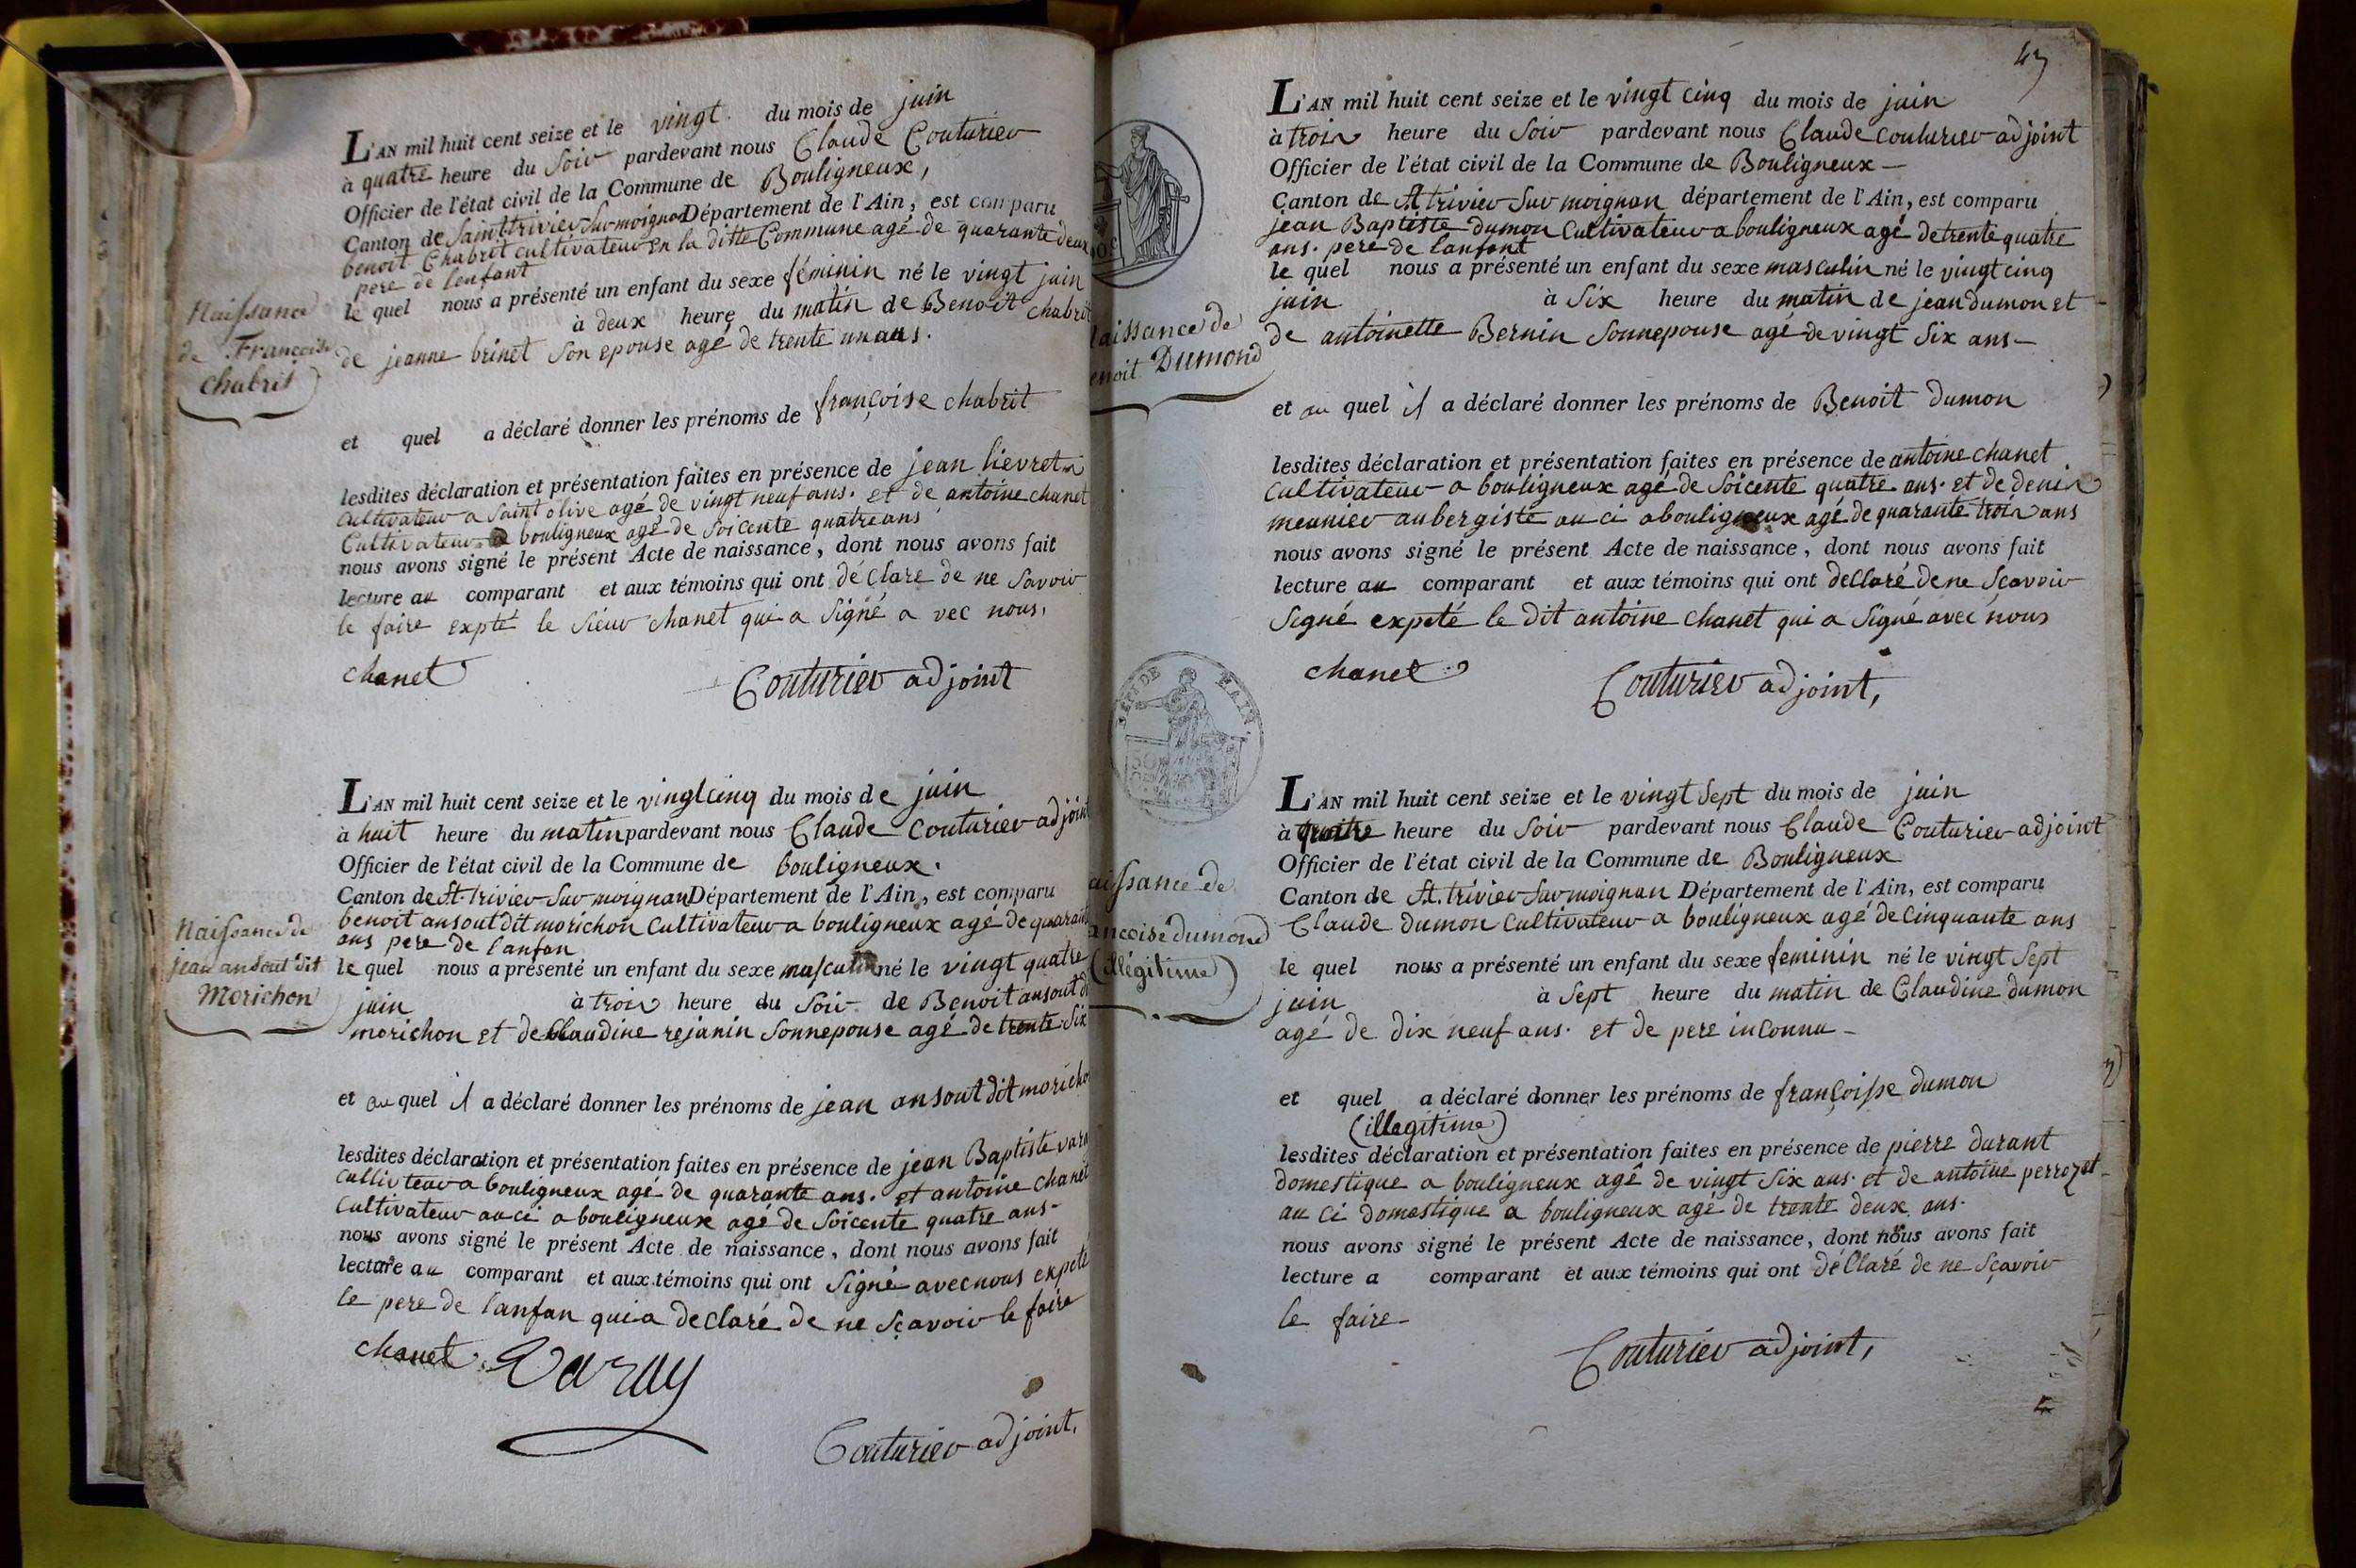 L'AN mil huit cent seize et le vingt du mois de juin
à quatre heure du Soir pardevant nous Claude Couturier
Officier de l'état civil de la Commune de Bouligneux,
Canton de Saint trivier Sur moignan Département de l'Ain, est comparu
benoit Chabrit cultivateur en la ditte Commune agé de quarante deux
pere de lenfant
le quel nous a présenté un enfant du sexe féminin né le vingt juin
à deux heure du matin de Benoit chabrit
de jeanne brinet Son epouse agé de trente un ans.
Naissance
de Francoise
chabrit
et quel a déclaré donner les prénoms de françoise chabrit
lesdites déclaration et présentation faites en présence de jean lievret
Cultivateur a Saint olive agé de vingt neuf ans. et de antoine chanet
Cultivateur a bouligneux agé de Soicente quatre ans
nous avons signé le présent Acte de naissance, dont nous avons fait
lecture au comparant et aux témoins qui ont déClaré de ne Savoir
le faire expté le Sieur chanet qui a Signé a vec nous,
chanet Couturier adjoint
L'AN mil huit cent seize et le vingt cinq du mois de juin
à huit heure du matin pardevant nous Claude Couturier adjoint
Officier de l'état civil de la Commune de bouligneux.
Canton de St. trivier Sur moignan Département de l'Ain, est comparu
benoit ansout dit morichon Cultivateur a bouligneux agé de quarant
ans pere de l'anfan
le quel nous a présenté un enfant du sexe masculin né le vingt quatre
juin à trois heure du Soir de Benoit ansout d
morichon et de Claudine rejanin Sonnepouse agé de trente Six
Naissance de
jean ansout dit
Morichon
et au quel il a déclaré donner les prénoms de jean ansout dit moricho
lesdites déclaration et présentation faites en présence de jean Baptiste vara
Cultivteur a bouligneux agé de quarante ans. et antoine chanet
Cultivateur au ci a bouligneux agé de Soicente quatre ans-
nous avons signé le présent Acte de naissance, dont nous avons fait
lecture au comparant et aux témoins qui ont Signé avec nous expeté
le pere de lanfan qui a declaré de ne Sçavoir le faire
chanet Varay
Couturier adjoint,
43
L'AN mil huit cent seize et le vingt cinq du mois de juin
à trois heure du Soir pardevant nous Claude couturier adjoint
Officier de l'état civil de la Commune de Bouligneux —
Canton de St trivier Sur moignan département de l'Ain, est comparu
jean Baptiste dumon Cultivateur a bouligneux agé de trente quatre
ans. pere de lanfant
le quel nous a présenté un enfant du sexe masculin né le vingt cinq
juin à Six heure du matin de jean dumon et
de antoinette Bernin Sonnepouse agé de vingt Six ans —
aissance de
enoit Dumond
et au quel il a déclaré donner les prénoms de Benoit dumon
lesdites déclaration et présentation faites en présence de antoine chanet
Cultivateur a bouligneux agé de Soicente quatre ans. et de denis
meunier aubergiste au ci a bouligneux agé de quarante trois ans
nous avons signé le présent Acte de naissance, dont nous avons fait
lecture au comparant et aux témoins qui ont declaré de ne Sçavoir
Segné expeté le dit antoine chanet qui a Signé avec nous
chanet Couturier adjoint,
L'AN mil huit cent seize et le vingt Sept du mois de juin
à quatre heure du Soir pardevant nous Claude Couturier adjoint
Officier de l'état civil de la Commune de Bouligneux
Canton de St. trivier Sur moignan Département de l'Ain, est comparu
Claude dumon Cultivateur a bouligneux agé de Cinquante ans
le quel nous a présenté un enfant du sexe feminin né le vingt Sept
juin à Sept heure du matin de Claudine dumon
agé de dix neuf ans. et de pere inConnu —
aissance de
ancoise dumond
(illégitime)
et quel a déclaré donner les prénoms de françoisse dumon
(illegitime)
lesdites déclaration et présentation faites en présence de pierre durant
domestique a bouligneux agé de vingt Six ans. et de antoine perrozet
au ci domestique a bouligneux agé de trente deux ans.
nous avons signé le présent Acte de naissance, dont nous avons fait
lecture a comparant et aux témoins qui ont déClaré de ne Sçavoir
le faire-
Couturier adjoint,